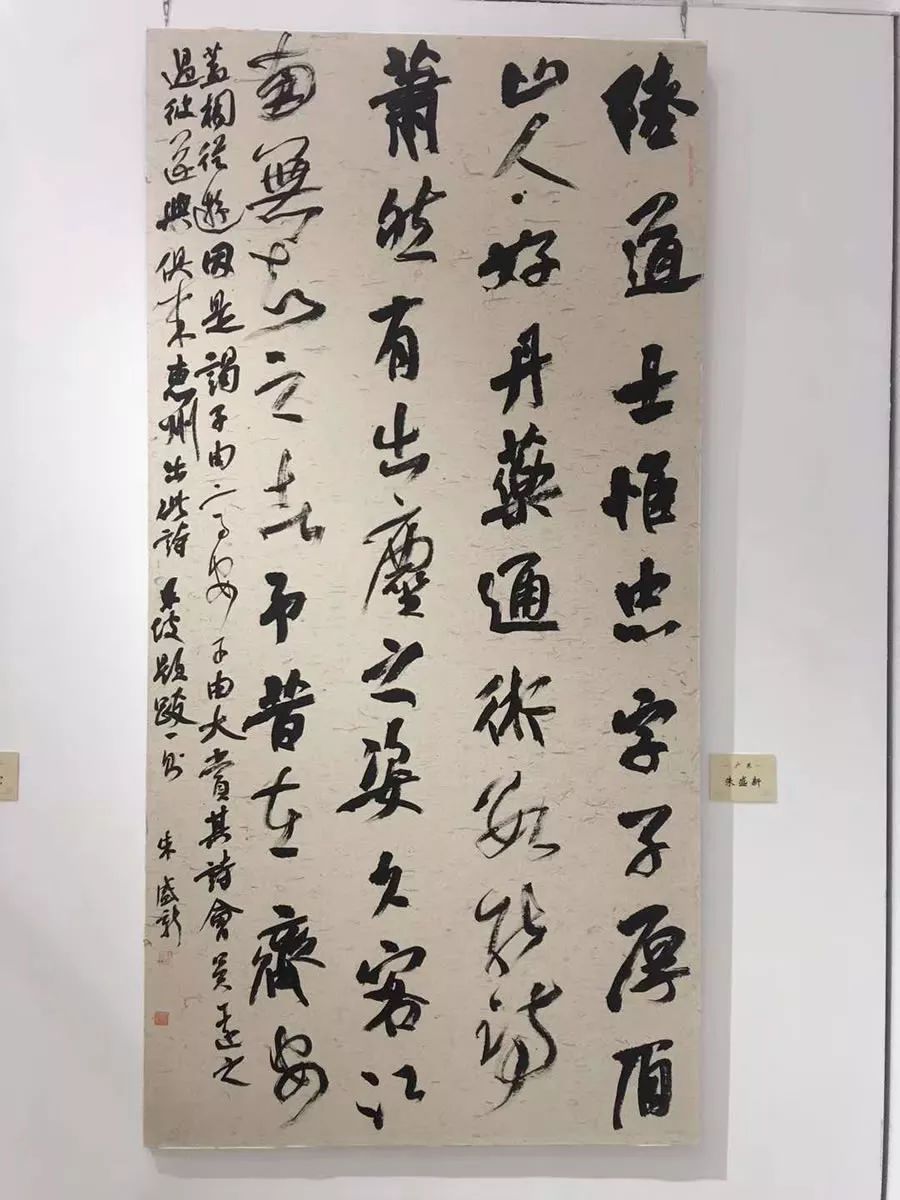 陸道士惟忠字子厚眉
山人好丹藥通術數能詩
蕭然有出塵之姿久客江
南無知之者予昔在齊安
蓋相從遊因是謁子由高安子由大賞其詩會吳遠之
過彼遂與俱來惠州出此詩 東坡題跋一則 朱盛新
广东
朱盛新